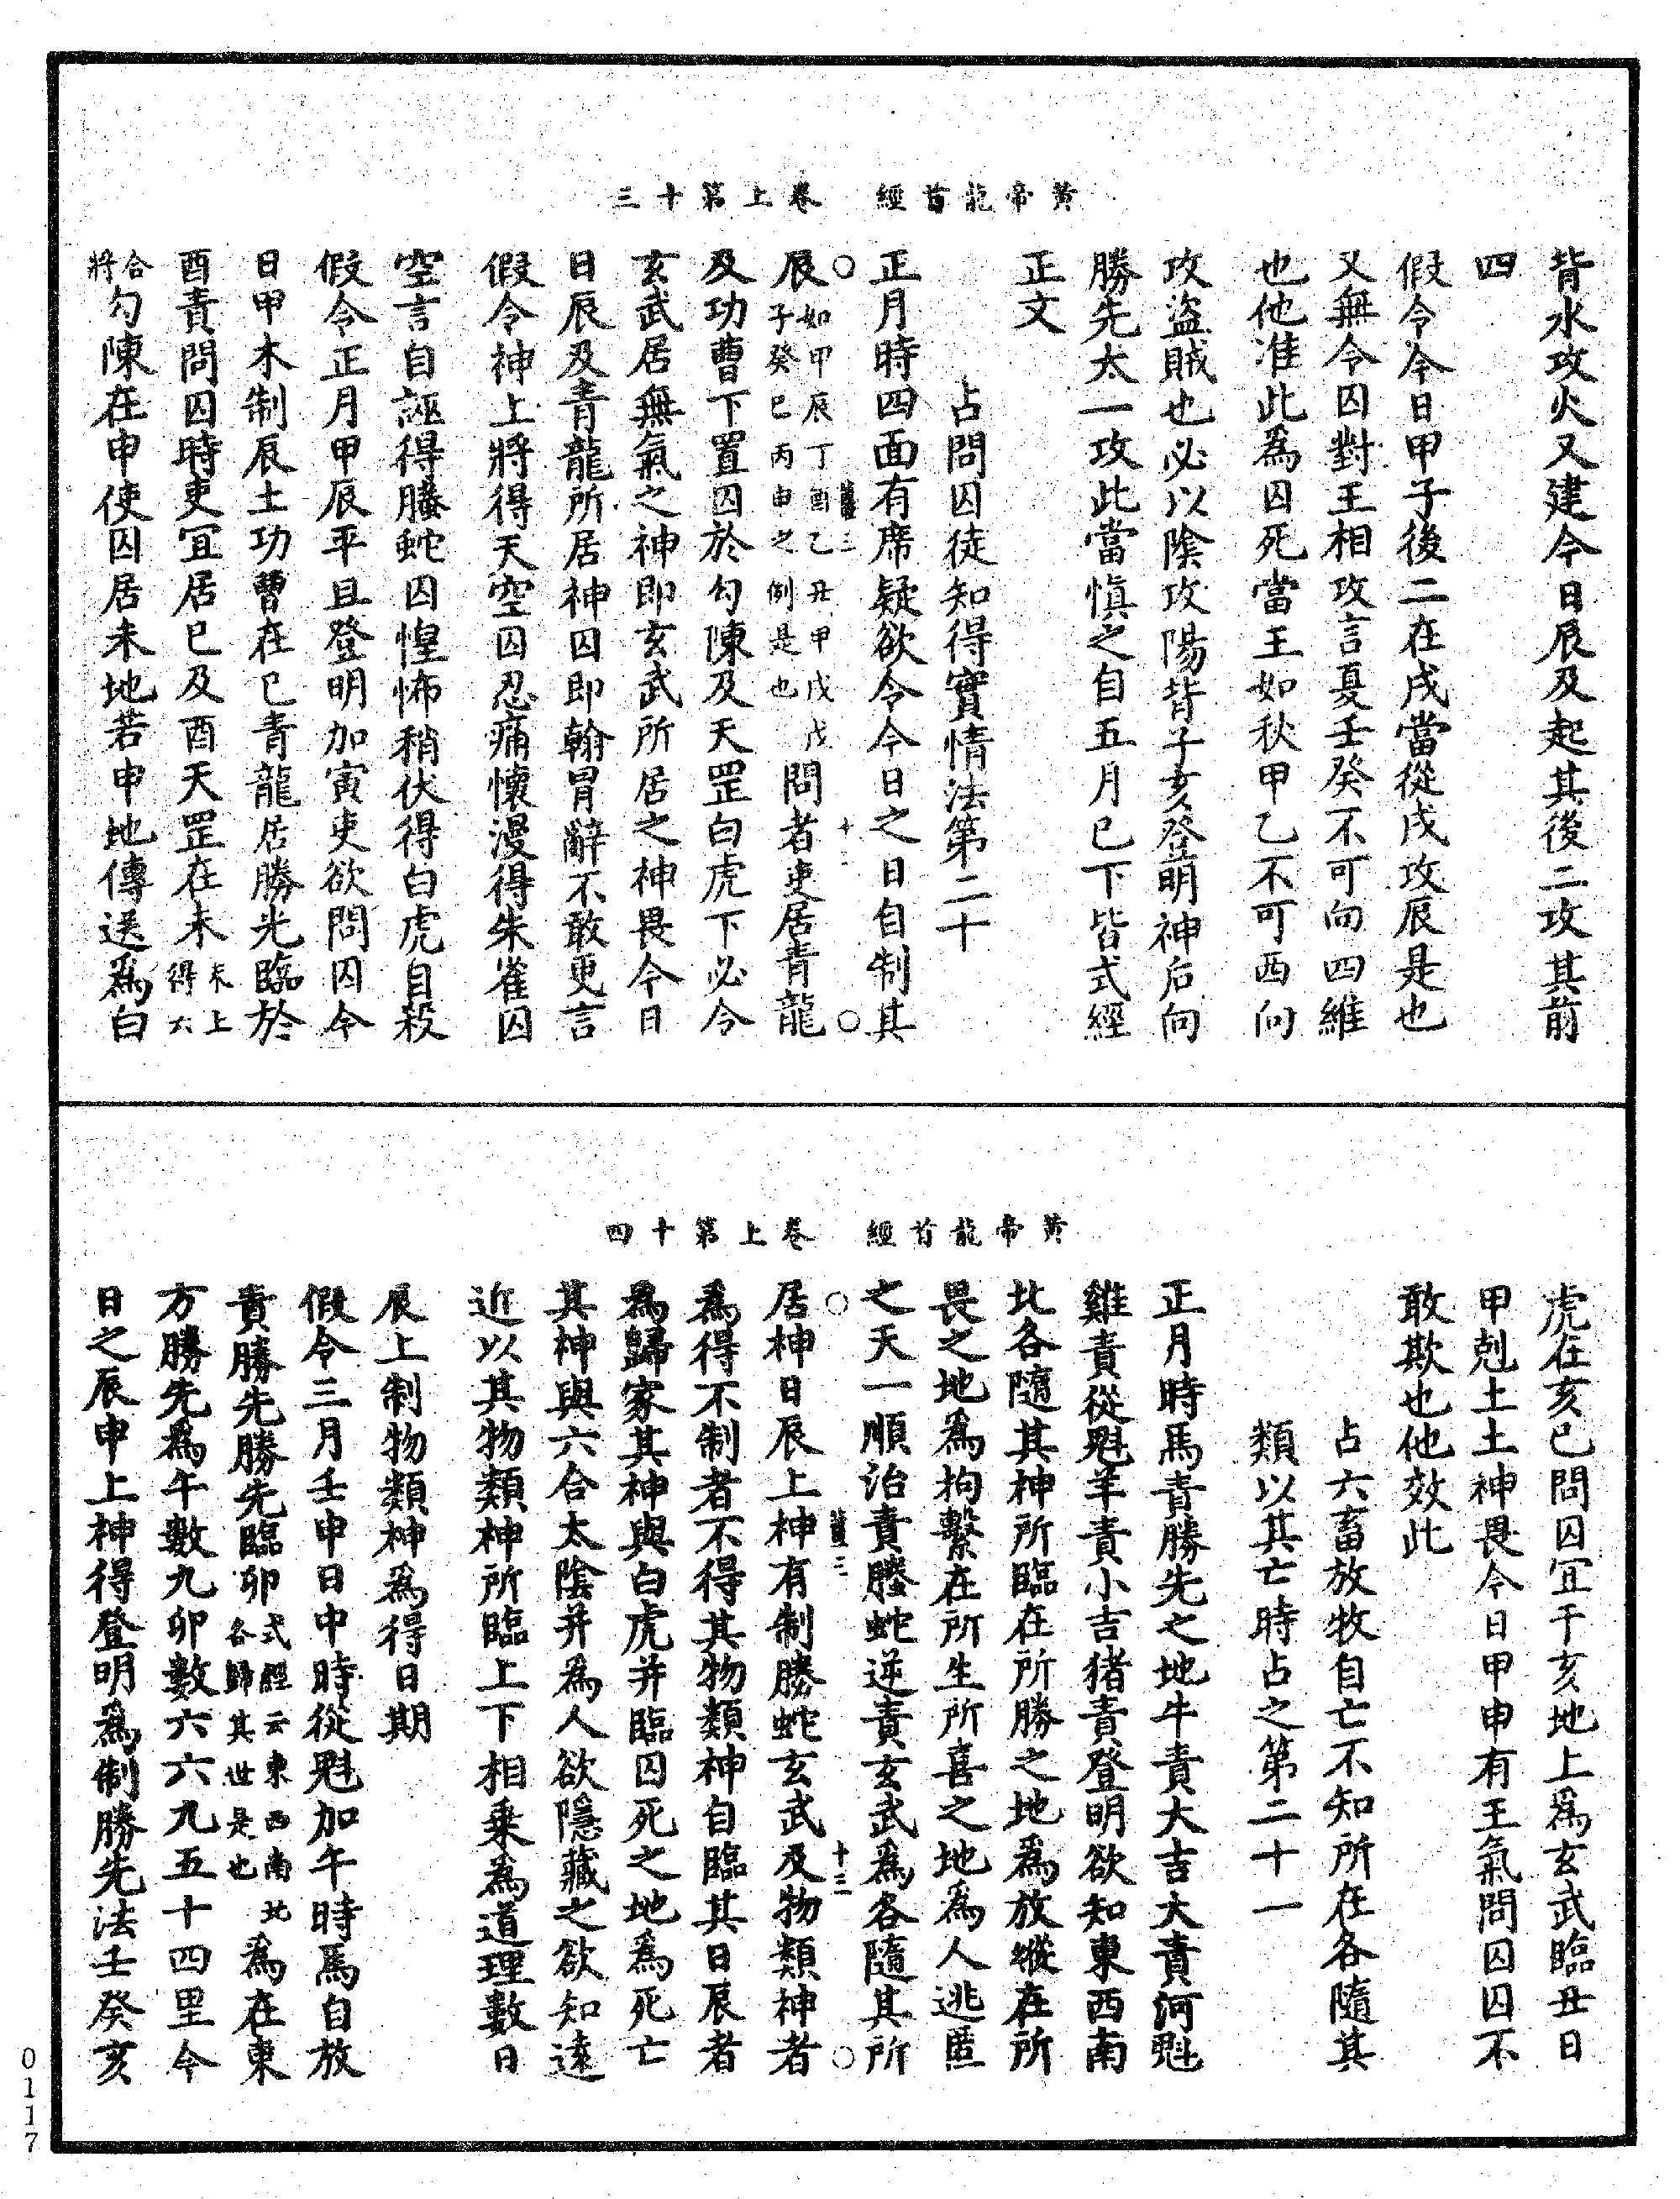 黃帝龍首經　卷上第十三
背水攻火又建今日辰及起其後二攻其前
四
假令今日甲子後二在戌當從戌攻辰是也
又無令囚對王相攻言憂壬癸不可向四維
也他准此為囚死當王如秋甲乙不可西向
攻盜賊也必以陰攻陽背子亥登明神后向
勝先太一攻此當慎之自五月已下皆式經
正文
占問囚徒知得實情法第二十
正月時四面有席疑欲令今日之日自制其
辰如甲辰丁酉乙丑甲戌戊
子癸巳丙申之例是也問者吏居青龍
及功曹下置囚於勾陳及天罡白虎下必令
玄武居無氣之神即玄武所居之神畏今日
日辰及青龍所居神囚即翰冐辭不敢更言
假令神上將得天空囚忍痛懷漫得朱雀囚
空言自誣得螣蛇囚惶怖稍伏得白虎自殺
假令正月甲辰平旦登明加寅吏欲問囚今
日甲木制辰土功曹在巳青龍居勝光臨於
酉責問囚時吏宜居巳及酉天罡在未未上
得六
合
將勾陳在申使囚居未地若申地傳送為白
黃帝龍首經　卷上第十四
虎在亥已問囚宜于亥地上為玄武臨丑日
甲剋土土神畏今日甲申有王氣問囚囚不
敢欺也他效此
占六畜放牧自亡不知所在各隨其
類以其亡時占之第二十一
正月時馬責勝先之地牛責大吉犬責河魁
雞責從魁羊責小吉猪責登明欲知東西南
北各隨其神所臨在所勝之地為放縱在所
畏之地為拘繫在所生所喜之地為人逃匿
之天一順治責螣蛇逆責玄武為各隨其所
居神日辰上神有制勝蛇玄武及物類神者
為得不制者不得其物類神自臨其日辰者
為歸家其神與白虎并臨囚死之地為死亡
其神與六合太陰并為人欲隱藏之欲知遠
近以其物類神所臨上下相乘為道理數日
辰上制物類神為得日期
假令三月壬申日申時從魁加午時馬自放
責勝先勝先臨卯式經云東西南北
各歸其世是也為在東
方勝先為午數九卯數六六九五十四里今
日之辰申上神得登明為制勝先法壬癸亥
0117